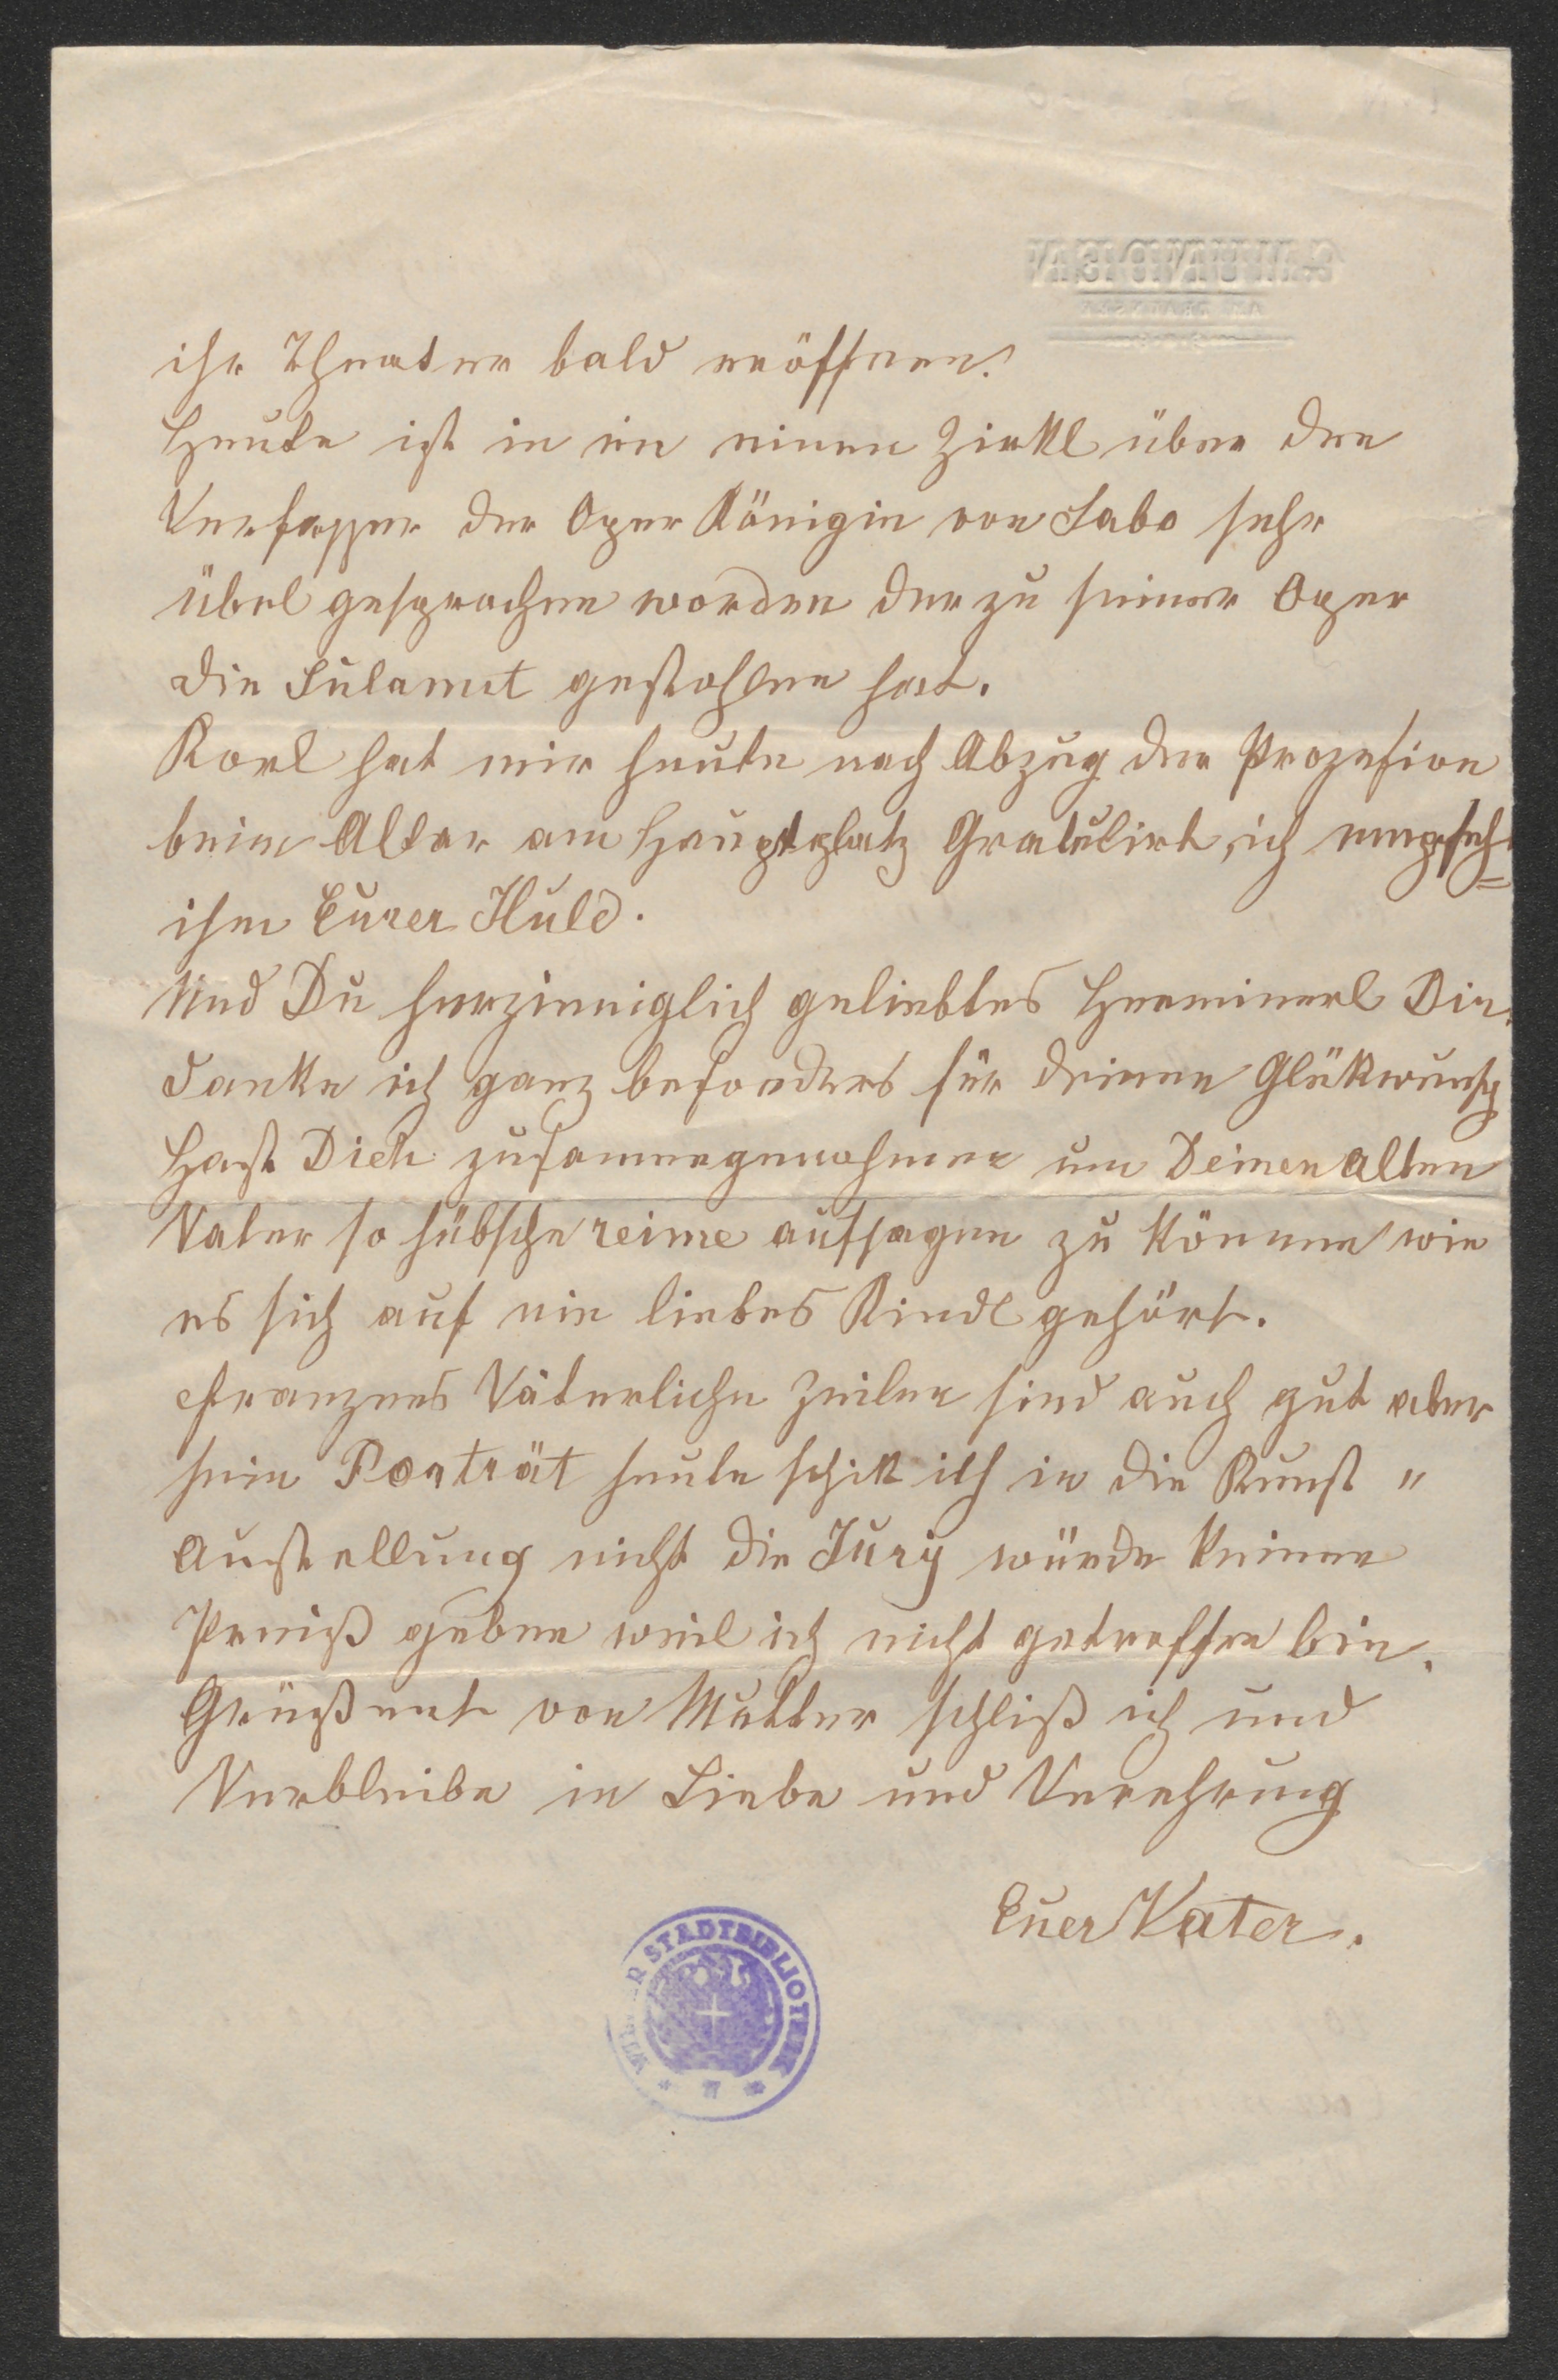 GMUNDEN
AM TRAUNSEE
ihr Theater bald eröffnen!
Heute ist in in einen Zirkl über den
Verfasser der Oper Königin von Saba sehr
übel gesprochen worden der zu seiner Oper
die Sulamit gestohlen hat.
Karl hat mir heute nach Abzug der Prozesion
beim Altar am Hauptplatz Gratulirt, ich empfehl
ihm Eurer Huld.
Und Du herzinniglich geliebtes Herminerl Dir
danke ich ganz besonders für deinen Glükwunsch
Hast Dich zusammengenohmen um Deinen alten
Vater so hübsche reime aufsagen zu können wie
es sich auf ein liebes Kindl gehört.
Franzens Väterliche Zeilen sind auch gut aber
sein Porträt heute schik ich in die Kunst "
Austellung nicht die Jury würde keinen
Preiß geben weil ich nicht getroffen bin.
Grüßent von Mutter schließ ich und
Verbleibe in Liebe und Verehrung
Euer Vater.
WIENER STADTBIBLIOTHEK